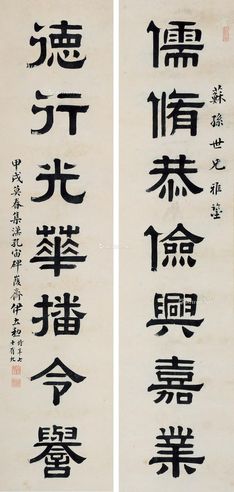 蘇孫世兄雅鑒
儒脩恭儉興嘉業
德行光華播令譽
甲戌莫春集漢孔宙碑峻齋伊立勳時年七十有九